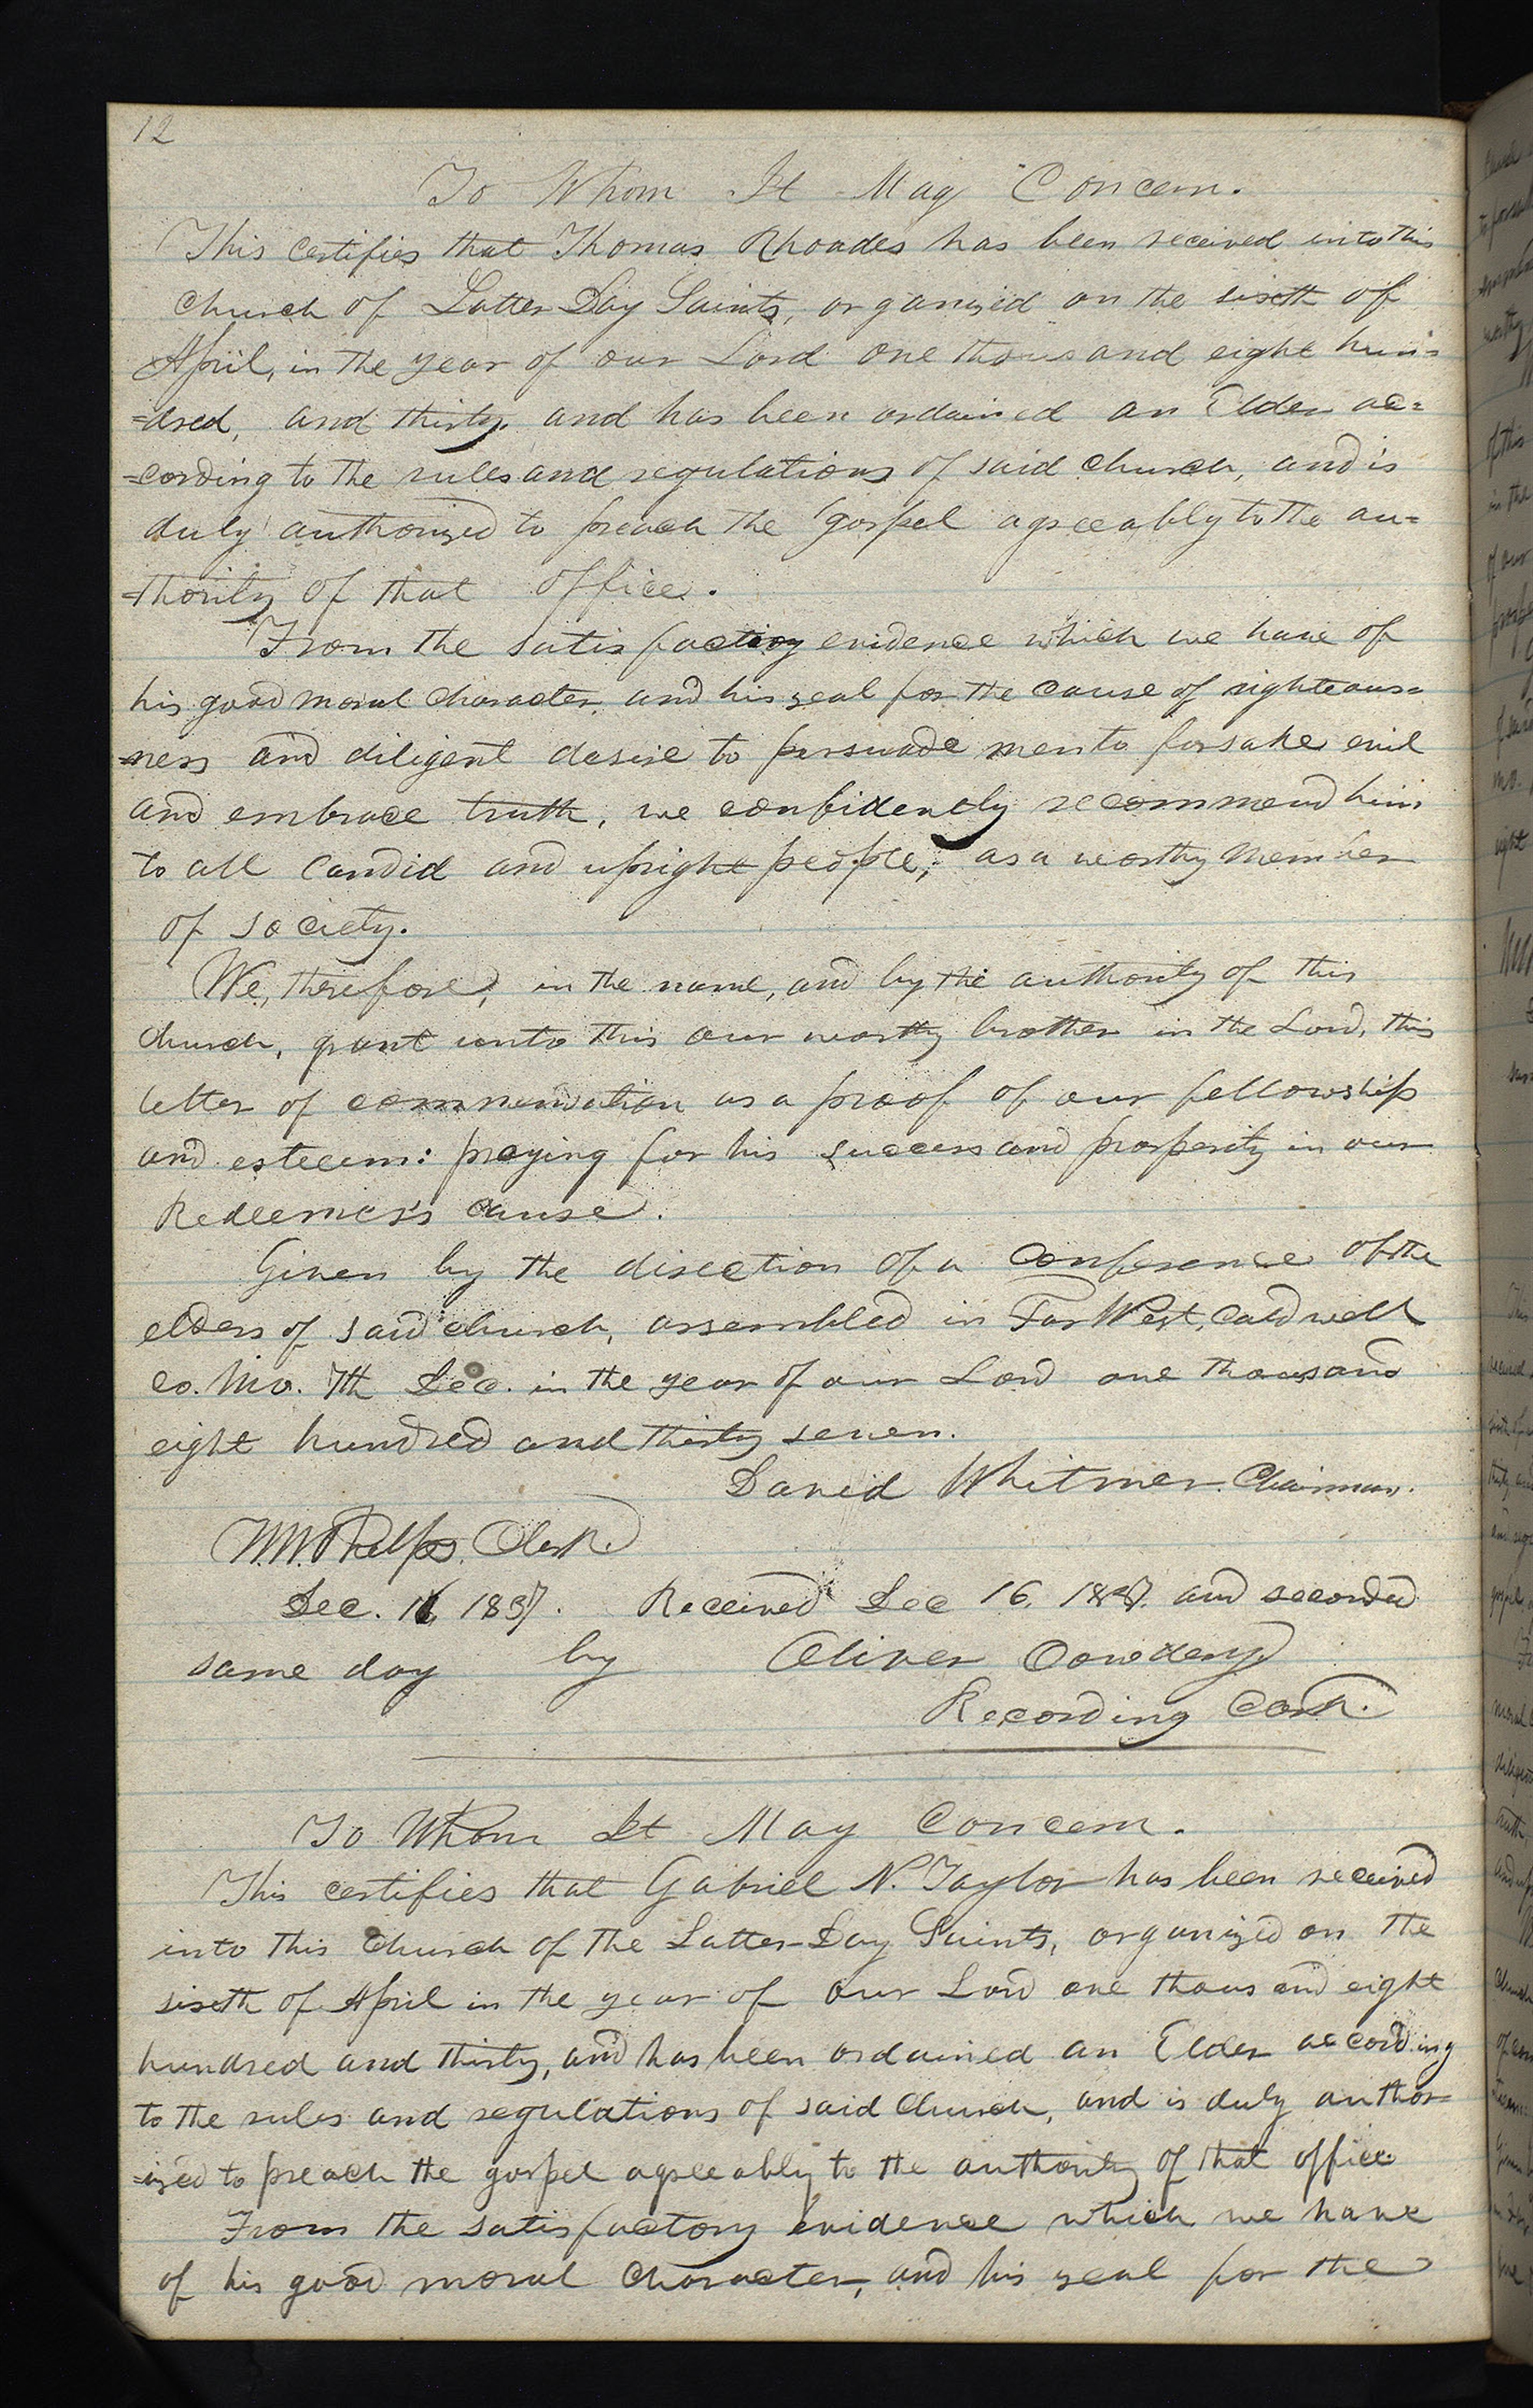 12
To Whom It May Concern.
This certifies that Thomas Rhoades has been received into this
church of Latter Day Saints, organized on the sixth of
April, in the year of our Lord one thousand eight hun=
=dred, and thirty. and has been ordained an Elder ac=
=cording to the rules and regulations of said church, and is
duly authorized to preach the gospel agreeably to the au=
=thority of that office.
From the satisfactory evidence which we have of
his good moral character, and his zeal for the cause of righteous=
=ness and diligent desire to persuade men to forsake evil
and embrace truth, we confidently recommend him
to all candid and upright people, as a worthy member
of society.
We, therefore, in the name, and by the authority of this
church, grant unto this our worthy brother in the Lord, this
letter of commendation as a proof of our fellowship
and esteem: praying for his success and prosperity in our
Redeemer's cause.
Given by the direction of a conference of the
elders of said church, assembled in Far West, Caldwell
co. Mo. 7th Dec. in the year of our Lord one thousand
eight hundred and thirty seven.
David Whitmer. Chairman.
W. W. Phelps. Clerk.
Dec. 16, 1837. Received Dec 16. 1837. and recorded
same day by Oliver Cowdery,
Recording Clerk.
To Whom It May Concern.
This certifies that Gabriel N. Taylor has been received
into this church of the Latter-Day Saints, organized on the
sixth of April in the year of our Lord one thousand eight
hundred and thirty, and has been ordained an Elder according
to the rules and regulations of said church, and is duly author=
=ized to preach the gospel agreeably to the authority of that office
From the satisfactory evidence which we have
of his good moral character, and his zeal for the